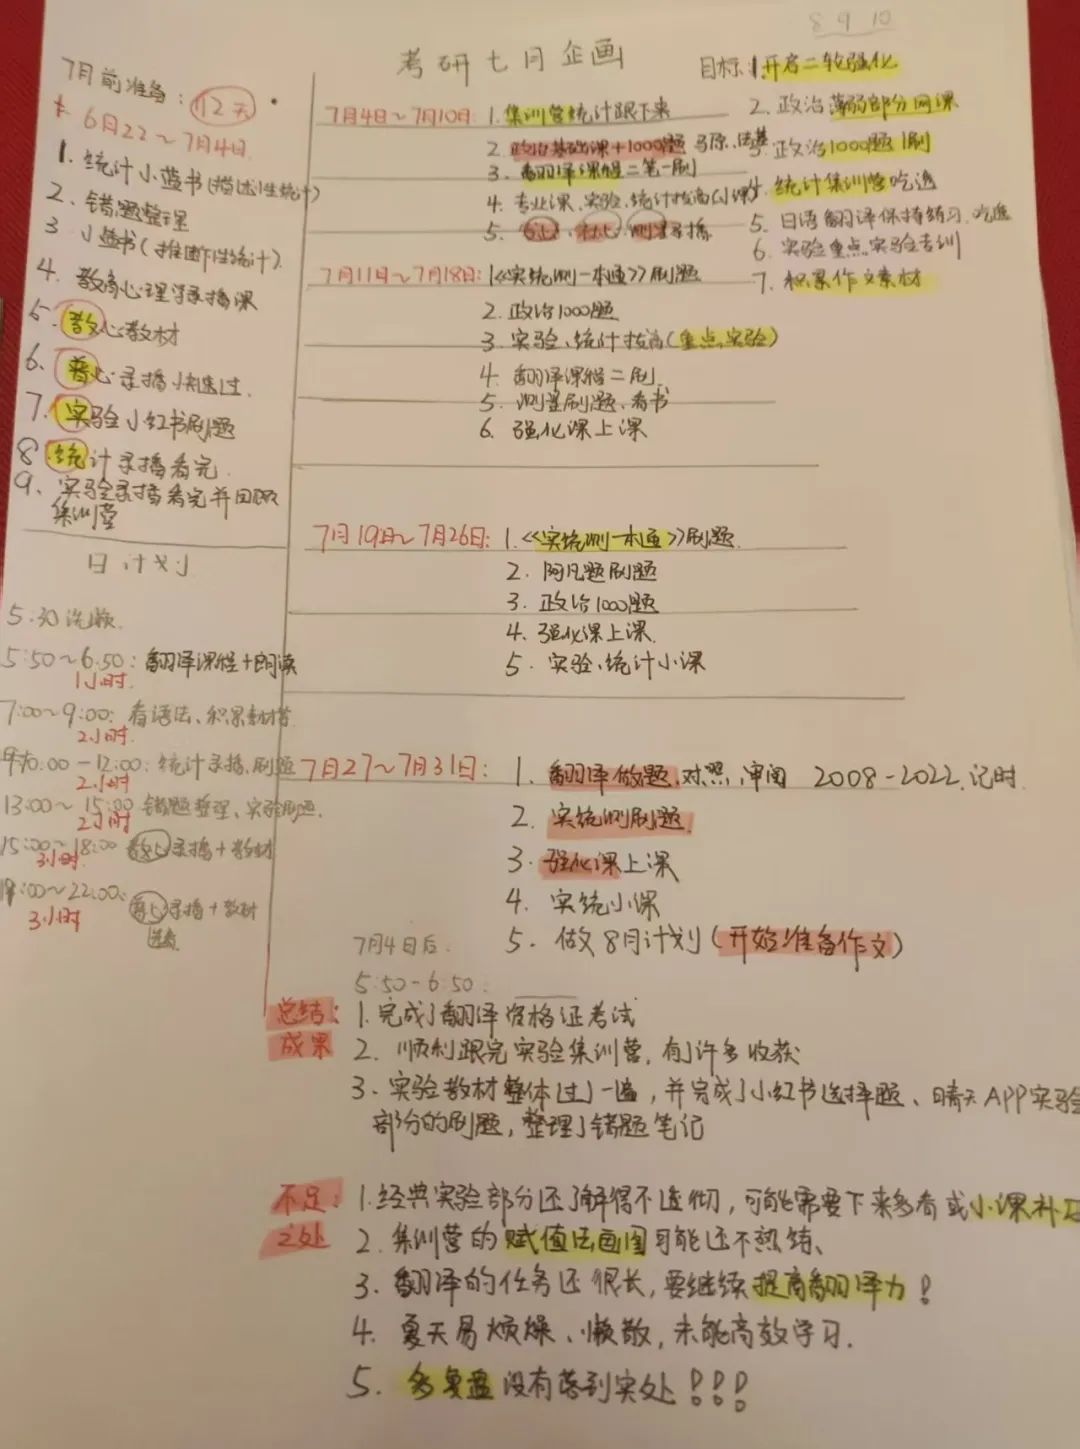 8 9 10
考研七月企画
7月前准备：12天
6月22～7月4日
1. 统计小蓝书(描述性统计)
2、错题整理
3 小蓝书(推断性统计)
4. 教育心理学录播课
5. 教心教材
6. 普心录播快速过.
7. 实验小红书刷题
8 统计录播看完.
9、实验录播看完并回顾
集训营
日计划
5:30洗漱
5:50～6:50: 翻译课程+朗读
1小时
7:00～9:00: 看语法、积累素材等
2小时
10:00-12:00: 统计录播、刷题
2小时
13:00～15:00 错题整理、实验刷题.
2小时
15:00～18:00 教心录播+教材
3小时
19:00～22:00: 普心录播+教材
3小时
目标: 1.开启二轮强化
2. 政治薄弱部分网课
3. 政治1000题1刷
4. 统计集训营吃透
5 日语翻译保持练习.吃透
6. 实验重点实验专训
7. 积累作文素材
7月4日～7月10日: 1.集训营统计跟下来
2. 政治基础课+1000题 马原、
3. 翻译课程二笔一刷
4. 专业课、实验、统计拔高(小课)
5. 社心、测量录播
7月11日～7月18日: 1《实统测一本通》刷题
2. 政治1000题
3. 实验、统计拔高(重点实验)
4. 翻译课程二刷
5. 测量刷题、看书
6. 强化课上课
7月19日～7月26日: 1.《实统测一本通》刷题
2. 阿凡题刷题
3. 政治1000题
4. 强化课上课.
5. 实验、统计小课
7月27～7月31日: 1. 翻译做题.对照.审阅 2008-2022.记时
2. 实统测刷题
3. 强化课上课
4. 实统小课
5. 做8月计划(开始准备作文)
7月4日后.
5:50-6:50:
总结: 1.完成了翻译资格证考试
成果 2. 顺利跟完实验集训营,有许多收获
3. 实验教材整体过了一遍,并完成了小红书选择题、晴天APP实验
部分的刷题,整理了错题笔记
不足: 1.经典实验部分还了解得不透彻,可能需要下来多看或小课补
之处 2. 集训营的赋值法画图可能还不熟练、
3. 翻译的任务还很长,要继续提高翻译力!
4. 夏天易烦燥、懒散,未能高效学习.
5. 多复盘没有落到实处!!!